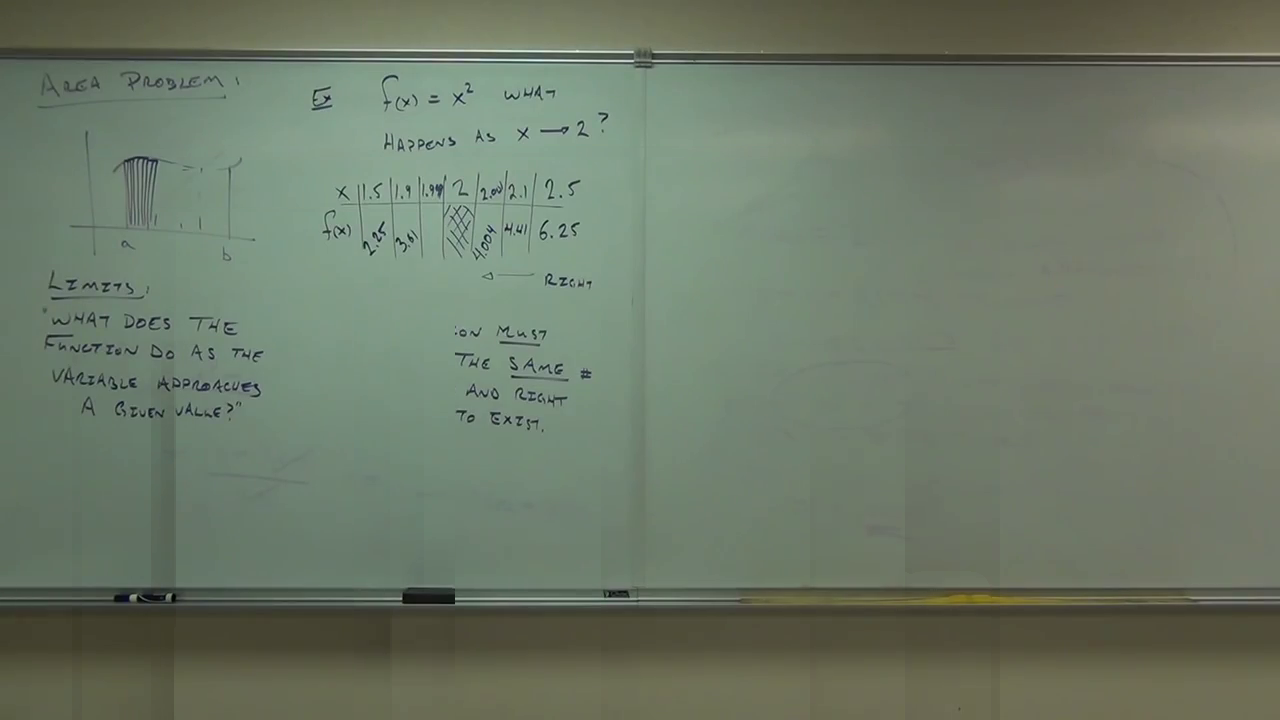 AREA PROBLEM:
a
b
LIMITS:
"WHAT DOES THE
FUNCTION DO AS THE
VARIABLE APPROACHES
A GIVEN VALUE?"
Ex f(x) = x² WHAT
HAPPENS AS x → 2?
x 1.5 1.9 2 2.1 2.5
f(x) 2.25 3.61 4.004 4.41 6.25
RIGHT
:ON MUST
THE SAME #
AND RIGHT
TO EXIST.